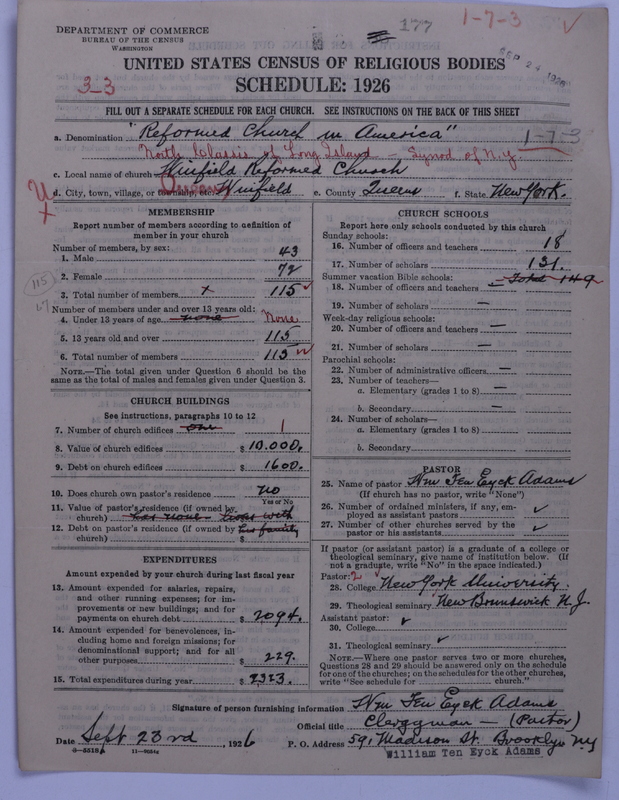 177
1-7-3
DEPARTMENT OF COMMERCE
BUREAU OF THE CENSUS
WASHINGTON
SEP 24 1926
UNITED STATES CENSUS OF RELIGIOUS BODIES
3-3
SCHEDULE: 1926
FILL OUT A SEPARATE SCHEDULE FOR EACH CHURCH. SEE INSTRUCTIONS ON THE BACK OF THIS SHEET
a. Denomination "Reformed Church in America"
1-7-3
North Classis of Long Island - Synod of N.Y.
c. Local name of church Winfield Reformed Church
d. City, town, village, or township, etc. Winfield e. County Queens f. State New York.
MEMBERSHIP
Report number of members according to definition of member in your church
Number of members, by sex:
1. Male 43
2. Female 72
3. Total number of members x 115
115
67
Number of members under and over 13 years old:
4. Under 13 years of age none None
5. 13 years old and over 115
6. Total number of members 115
NOTE.—The total given under Question 6 should be the same as the total of males and females given under Question 3.
CHURCH BUILDINGS
See instructions, paragraphs 10 to 12
7. Number of church edifices one 1
8. Value of church edifices $ 10.000.
9. Debt on church edifices $ 1600.
10. Does church own pastor's residence no
Yes or No
11. Value of pastor's residence (if owned by church) has none lives with
12. Debt on pastor's residence (if owned by church) his family $
EXPENDITURES
Amount expended by your church during last fiscal year
13. Amount expended for salaries, repairs, and other running expenses; for improvements or new buildings; and for payments on church debt $ 2094.
14. Amount expended for benevolences, including home and foreign missions; for denominational support; and for all other purposes $ 229.
15. Total expenditures during year $ 2323.
CHURCH SCHOOLS
Report here only schools conducted by this church
Sunday schools:
16. Number of officers and teachers 18
17. Number of scholars 131.
Summer vacation Bible schools: Total 149
18. Number of officers and teachers —
19. Number of scholars —
Week-day religious schools:
20. Number of officers and teachers —
21. Number of scholars —
Parochial schools:
22. Number of administrative officers —
23. Number of teachers—
a. Elementary (grades 1 to 8) —
b. Secondary —
24. Number of scholars—
a. Elementary (grades 1 to 8)
b. Secondary
PASTOR
25. Name of pastor Wm Ten Eyck Adams
(If church has no pastor, write "None")
26. Number of ordained ministers, if any, employed as assistant pastors ✓
27. Number of other churches served by the pastor or his assistants ✓
If pastor (or assistant pastor) is a graduate of a college or theological seminary, give name of institution below. (If not a graduate, write "No" in the space indicated.)
Pastor: 2
28. College New York University.
29. Theological seminary New Brunswick N.J.
Assistant pastor:
30. College ✓
31. Theological seminary ✓
NOTE.—Where one pastor serves two or more churches, Questions 28 and 29 should be answered only on the schedule for one of the churches; on the schedules for the other churches, write "See schedule for church."
Signature of person furnishing information Wm Ten Eyck Adams
Official title Clergyman - (Pastor)
Date Sept 23rd, 1926 P. O. Address 591 Madison St. Brooklyn N.Y
William Ten Eyck Adams